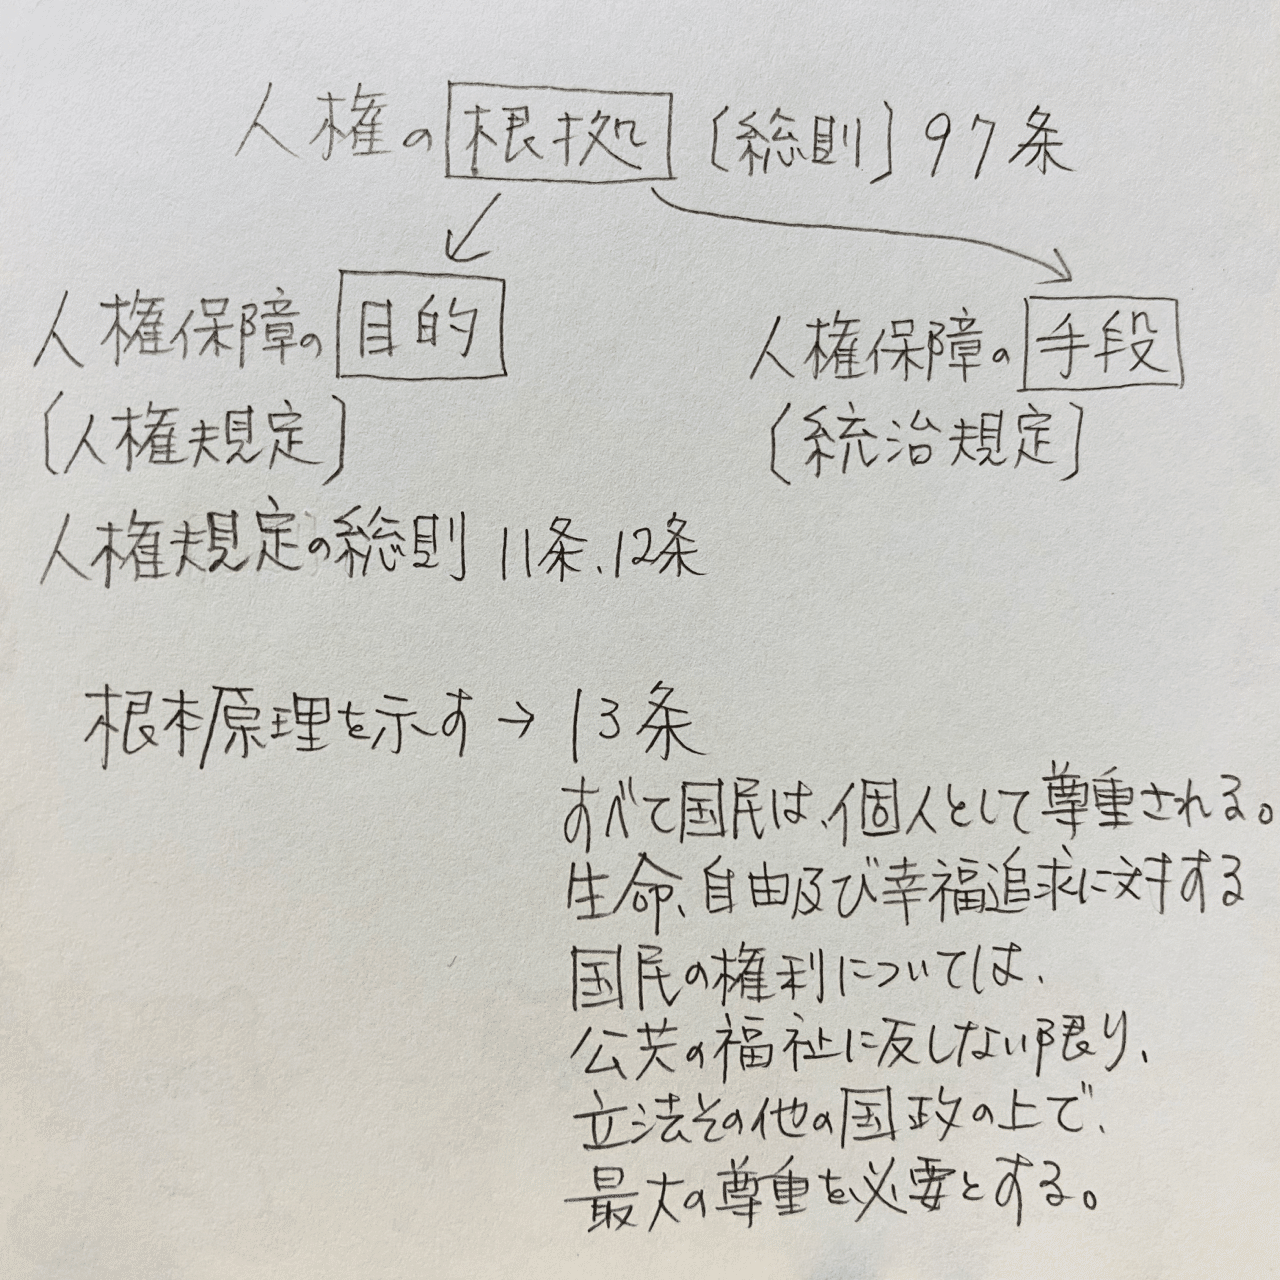 人権の根拠〔総則〕97条
人権保障の目的
〔人権規定〕
人権保障の手段
〔統治規定〕
人権規定の総則 11条、12条
根本原理を示す→13条
すべて国民は、個人として尊重される。
生命、自由及び幸福追求に対する
国民の権利については、
公共の福祉に反しない限り、
立法その他の国政の上で、
最大の尊重を必要とする。